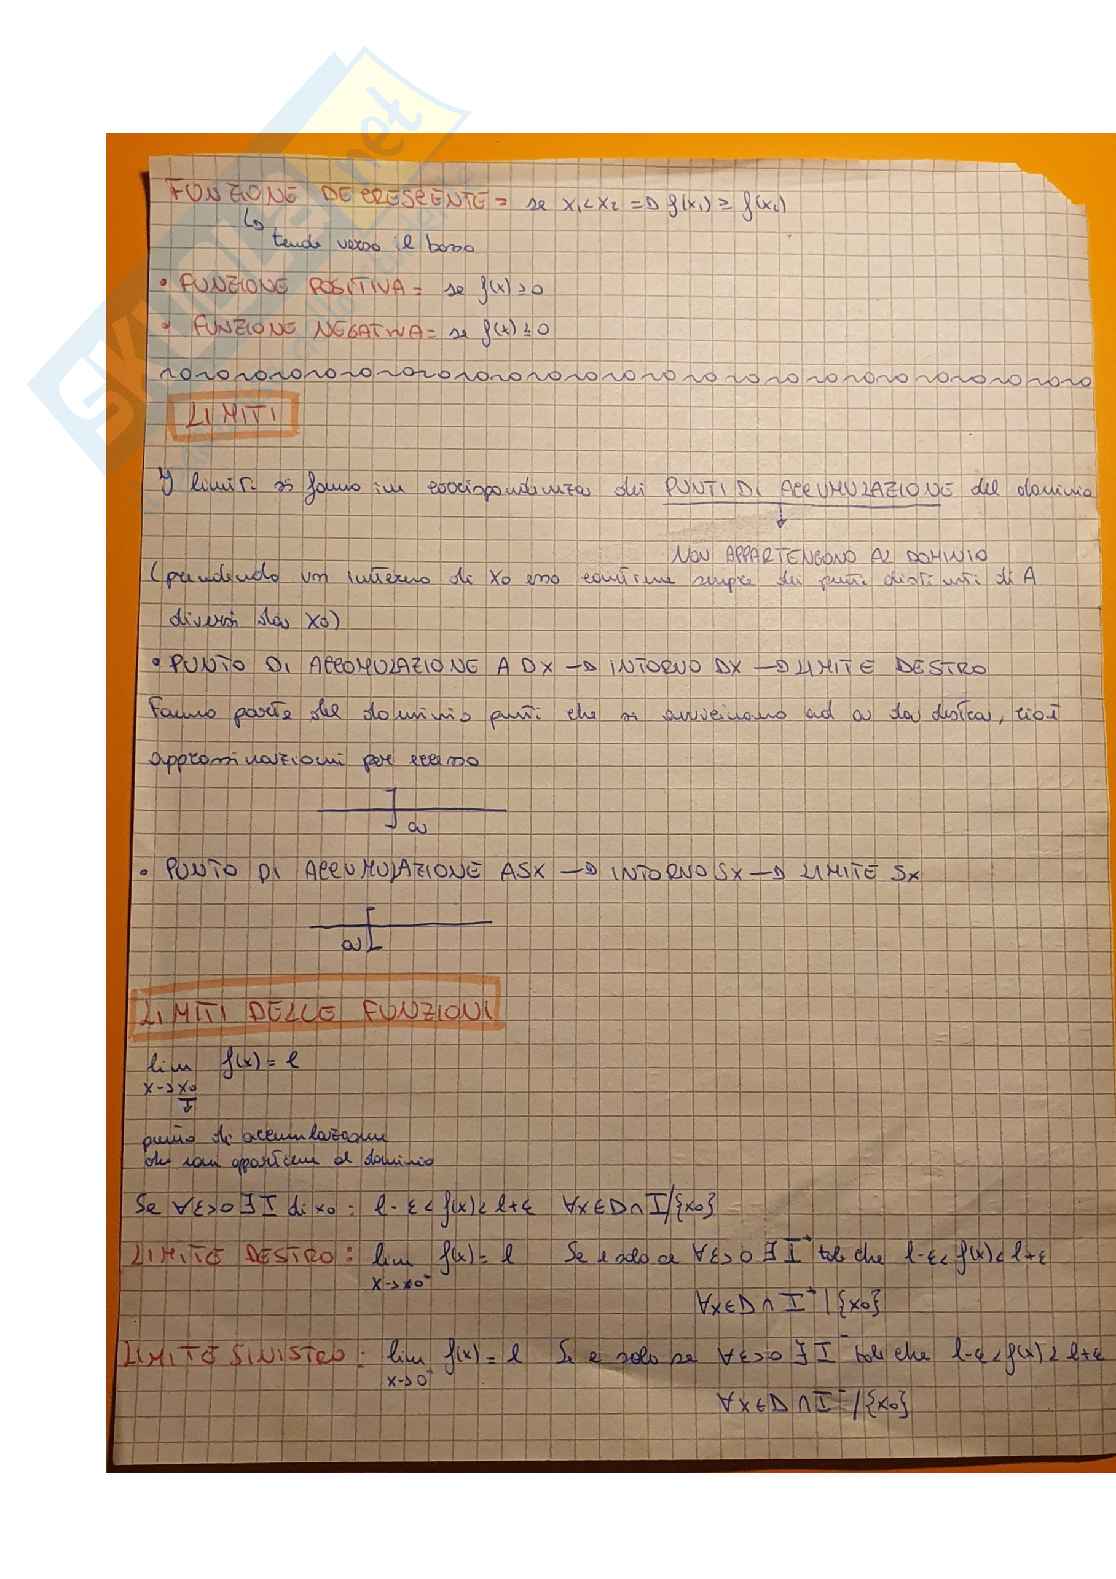 SKUOLA.net
FUNZIONE DECRESCENTE = se x₁<x₂ => f(x₁) ≥ f(x₂)
↳ tende verso il basso
• FUNZIONE POSITIVA = se f(x) ≥0
• FUNZIONE NEGATIVA = se f(x) ≤0
LIMITI
I limiti si fanno in corrispondenza dei PUNTI DI ACCUMULAZIONE del dominio
↓
NON APPARTENGONO AL DOMINIO
(prendendo un intorno di x0 esso contiene sempre dei punti distinti di A
diversi da x0)
• PUNTO DI ACCUMULAZIONE A DX → INTORNO DX → LIMITE DESTRO
Fanno parte del dominio punti che si avvicinano ad a da destra, cioè
approssimazioni per eccesso
a
• PUNTO DI ACCUMULAZIONE A SX → INTORNO SX → LIMITE SX
a
LIMITI DELLE FUNZIONI
lim f(x) = l
x→x0
↓
punto di accumulazione
che non appartiene al dominio
Se ∀ε>0 ∃ I di x0 : l-ε < f(x) < l+ε ∀x∈D∩I/{x0}
LIMITE DESTRO : lim f(x) = l Se e solo se ∀ε>0 ∃ I⁺ tale che l-ε< f(x)< l+ε
x→x0⁺
∀x∈D∩I⁺\{x0}
LIMITE SINISTRO : lim f(x) = l Se e solo se ∀ε>0 ∃ I⁻ tale che l-ε< f(x)< l+ε
x→0⁻
∀x∈D∩I⁻/{x0}